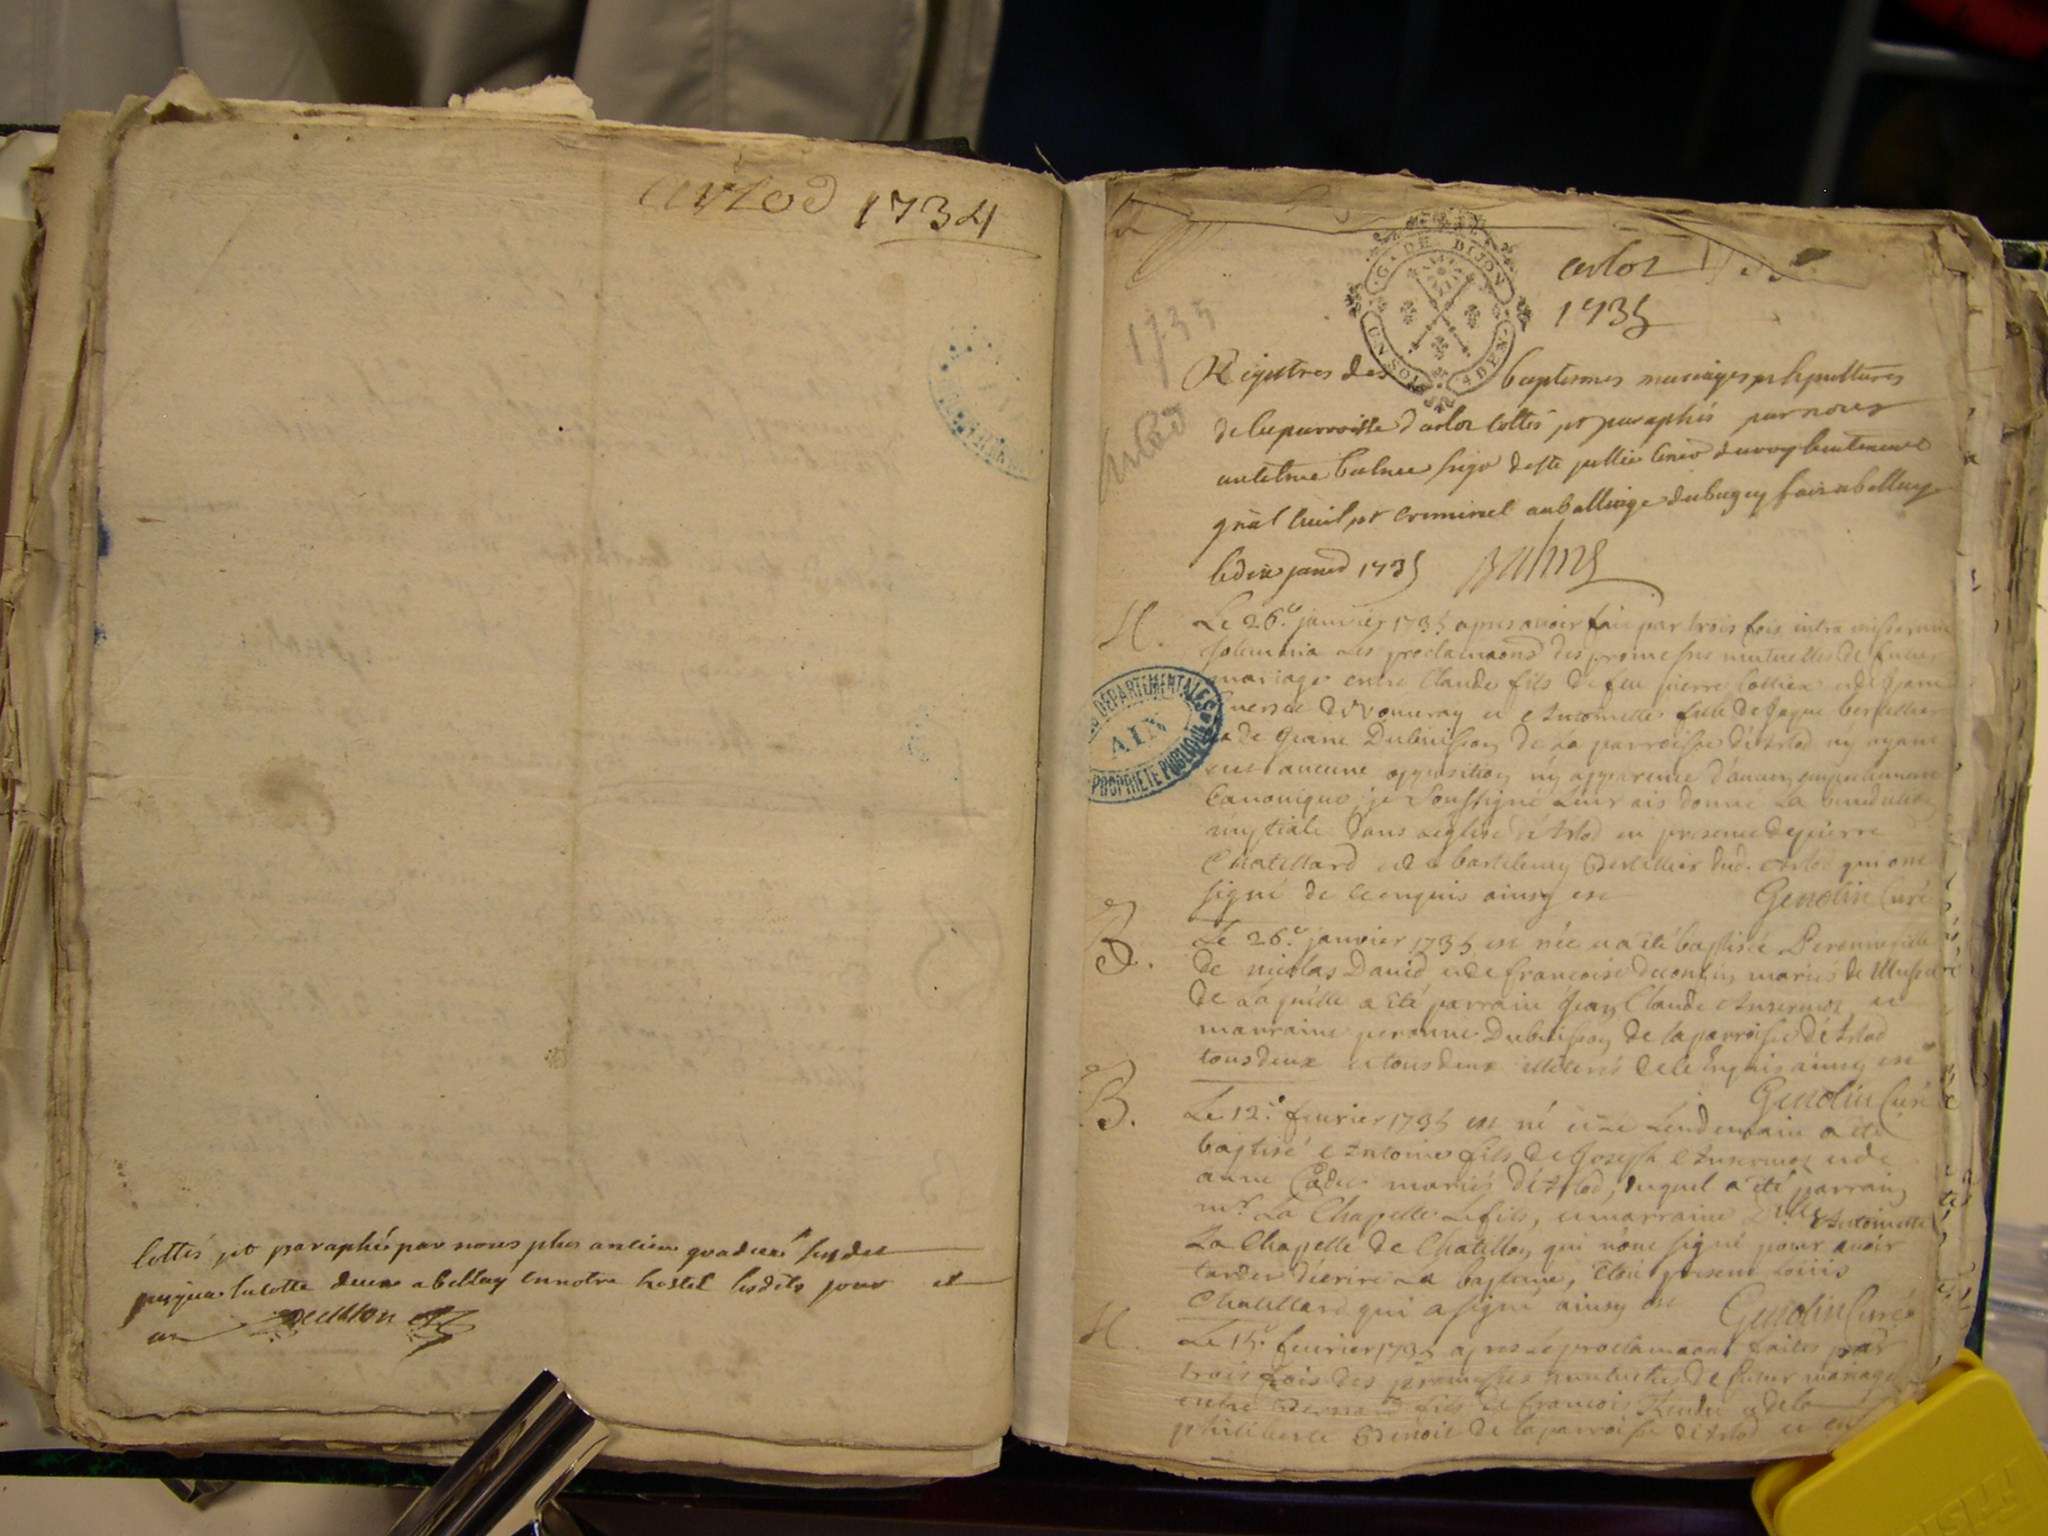 arlod 1734
Cottés et paraphés par nous plus ancien gradué
jusques la cotte deux a bellay en notre hostel lesdits jour et
an
arloz
1735
1735
Arlod
G. DE DIJON
UN SOL
Registres des baptesmes mariages et sepultures
de la parroisse d'arloz cottés et paraphés par nous
antelme balme
gnal civil et criminel au balliage du bugey
le dix janvier 1735 Balme
DEPARTEMENTALES
AIN
PROPRIETE PUBLIQUE
M. Le 26.e janvier 1735 apres avoir fait par trois fois intra missarum
solemnia les proclamaons des promesses mutuelles de futur
mariage entre Claude fils de feu pierre
de vouvray et Antoinette fille de Jaque bertellier
et de Jeane Dubuisson de la parroisse d'Arlod ny ayant
eut aucune opposition n'y apparence d'aucun empechement
Canonique, je soussigné leur ais donné la benediction
nuptiale dans l'eglise d'Arlod en presence de pierre
Chatillard et de bartelemy Bertellier dud. Arlod qui ont
signé de ce enquis ainsy est Genolin Curé
B. Le 26.e janvier 1735 est née et a été baptisée Peronne fille
de nicolas David et de francoise mariés de Mussel
de laquelle a été parrain Jean Claude Ansermoz et
marraine peronne Dubuisson de la parroisse d'Arlod
tous deux et tous deux illiterés de ce enquis ainsy est
Genolin Curé
B. Le 12.e fevrier 1735 est né et le lendemain a été
baptisé Antoine fils de Joseph Ansermoz et de
anne mariés d'Arlod, duquel a été parrain
mr. La Chapelle le fils, et marraine Dlle Antoinette
La Chapelle de Chatillon qui n'ont signé pour avoir
tarder d'ecrire le bapteme, etoit present Loüis
Chatillard qui a signé ainsy est Genolin Curé
M. Le 15.e fevrier 1735 apres les proclamaons faites par
trois fois des promesses mutuelles de futur mariage
entre Bernard fils de francois et de
philiberte Benoit de la parroisse d'Arlod et